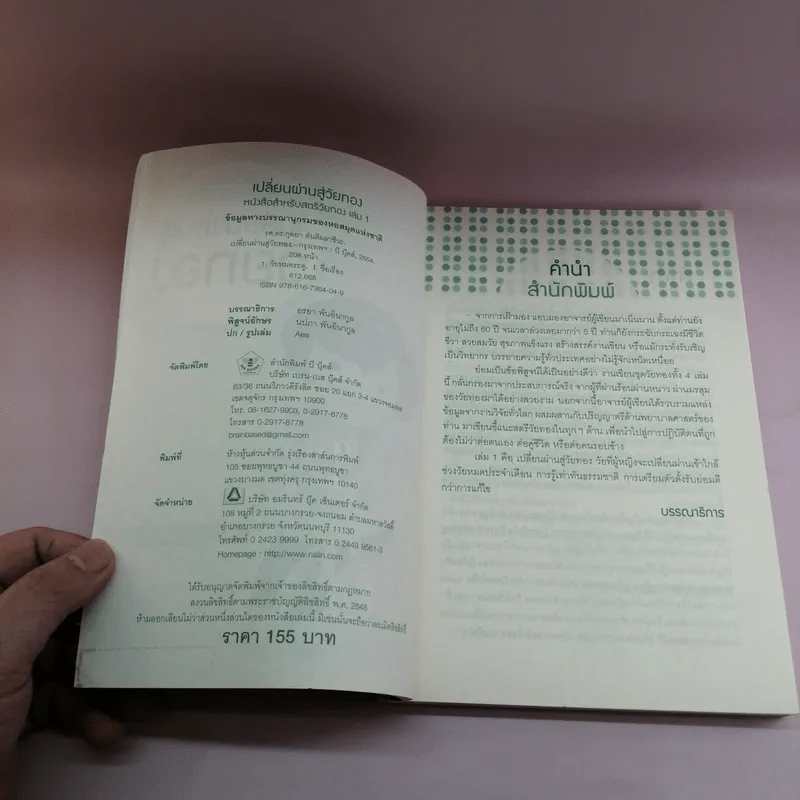 เปลี่ยนผ่านสู่วัยทอง
หนังสือสำหรับสตรีวัยทอง เล่ม 1
ข้อมูลทางบรรณานุกรมของหอสมุดแห่งชาติ
รศ.ดร.กุลยา ตันติผลาชีวะ.
เปลี่ยนผ่านสู่วัยทอง.--กรุงเทพฯ : บี บุ๊คส์, 2554.
208 หน้า
1. วัยหมดระดู. I. ชื่อเรื่อง
612.665
ISBN 978-616-7364-04-9
บรรณาธิการ อรยา พันธินากูล
พิสูจน์อักษร นปภา พันธินากูล
ปก / รูปเล่ม Aea
จัดพิมพ์โดย สำนักพิมพ์ บี บุ๊คส์
บริษัท เบรน-เบส บุ๊คส์ จำกัด
63/36 ถนนวิภาวดีรังสิต ซอย 20 แยก 3-4 แขวงจอมพล
เขตจตุจักร กรุงเทพฯ 10900
โทร. 08-1627-9903, 0-2917-8778
โทรสาร 0-2917-8778
brainbased@gmail.com
พิมพ์ที่ ห้างหุ้นส่วนจำกัด รุ่งเรืองสาส์นการพิมพ์
105 ซอยพุทธบูชา 44 ถนนพุทธบูชา
แขวงบางมด เขตทุ่งครุ กรุงเทพฯ 10140
จัดจำหน่าย บริษัท อมรินทร์ บุ๊ค เซ็นเตอร์ จำกัด
108 หมู่ที่ 2 ถนนบางกรวย-จงถนอม ตำบลมหาสวัสดิ์
อำเภอบางกรวย จังหวัดนนทบุรี 11130
โทรศัพท์ 0 2423 9999 โทรสาร 0 2449 9561-3
Homepage : http://www.naiin.com
ได้รับอนุญาตจัดพิมพ์จากเจ้าของลิขสิทธิ์ตามกฎหมาย
สงวนลิขสิทธิ์ตามพระราชบัญญัติลิขสิทธิ์ พ.ศ. 2548
ห้ามลอกเลียนไม่ว่าส่วนหนึ่งส่วนใดของหนังสือเล่มนี้ มิเช่นนั้นจะถือว่าละเมิดลิขสิทธิ์
ราคา 155 บาท
คำนำ
สำนักพิมพ์
จากการเฝ้ามอง แอบมองอาจารย์ผู้เขียนมาเนิ่นนาน ตั้งแต่ท่านยัง
อายุไม่ถึง 60 ปี จนเวลาล่วงเลยมากว่า 5 ปี ท่านก็ยังกระฉับกระเฉงมีชีวิต
ชีวา สวยสมวัย สุขภาพแข็งแรง สร้างสรรค์งานเขียน หรือแม้กระทั่งรับเชิญ
เป็นวิทยากร บรรยายความรู้ทั่วประเทศอย่างไม่รู้จักเหนื่อย
ย่อมเป็นข้อพิสูจน์ได้เป็นอย่างดีว่า งานเขียนชุดวัยทองทั้ง 4 เล่ม
นี้ กลั่นกรองมาจากประสบการณ์จริง จากผู้ที่ผ่านร้อนผ่านหนาว ผ่านมรสุม
ของวัยทองมาได้อย่างสวยงาม นอกจากนี้อาจารย์ผู้เขียนได้รวบรวมแหล่ง
ข้อมูลจากงานวิจัยทั่วโลก ผสมผสานกับปริญญาตรีด้านพยาบาลศาสตร์ของ
ท่าน มาเขียนชี้แนะสตรีวัยทองในทุกๆ ด้าน เพื่อนำไปสู่การปฏิบัติตนที่ถูก
ต้องไม่ว่าต่อตนเอง ต่อคู่ชีวิต หรือต่อคนรอบข้าง
เล่ม 1 คือ เปลี่ยนผ่านสู่วัยทอง วัยที่ผู้หญิงจะเปลี่ยนผ่านเข้าใกล้
ช่วงวัยหมดประจำเดือน การรู้เท่าทันธรรมชาติ การเตรียมตัวตั้งรับย่อมดี
กว่าการแก้ไข
บรรณาธิการ